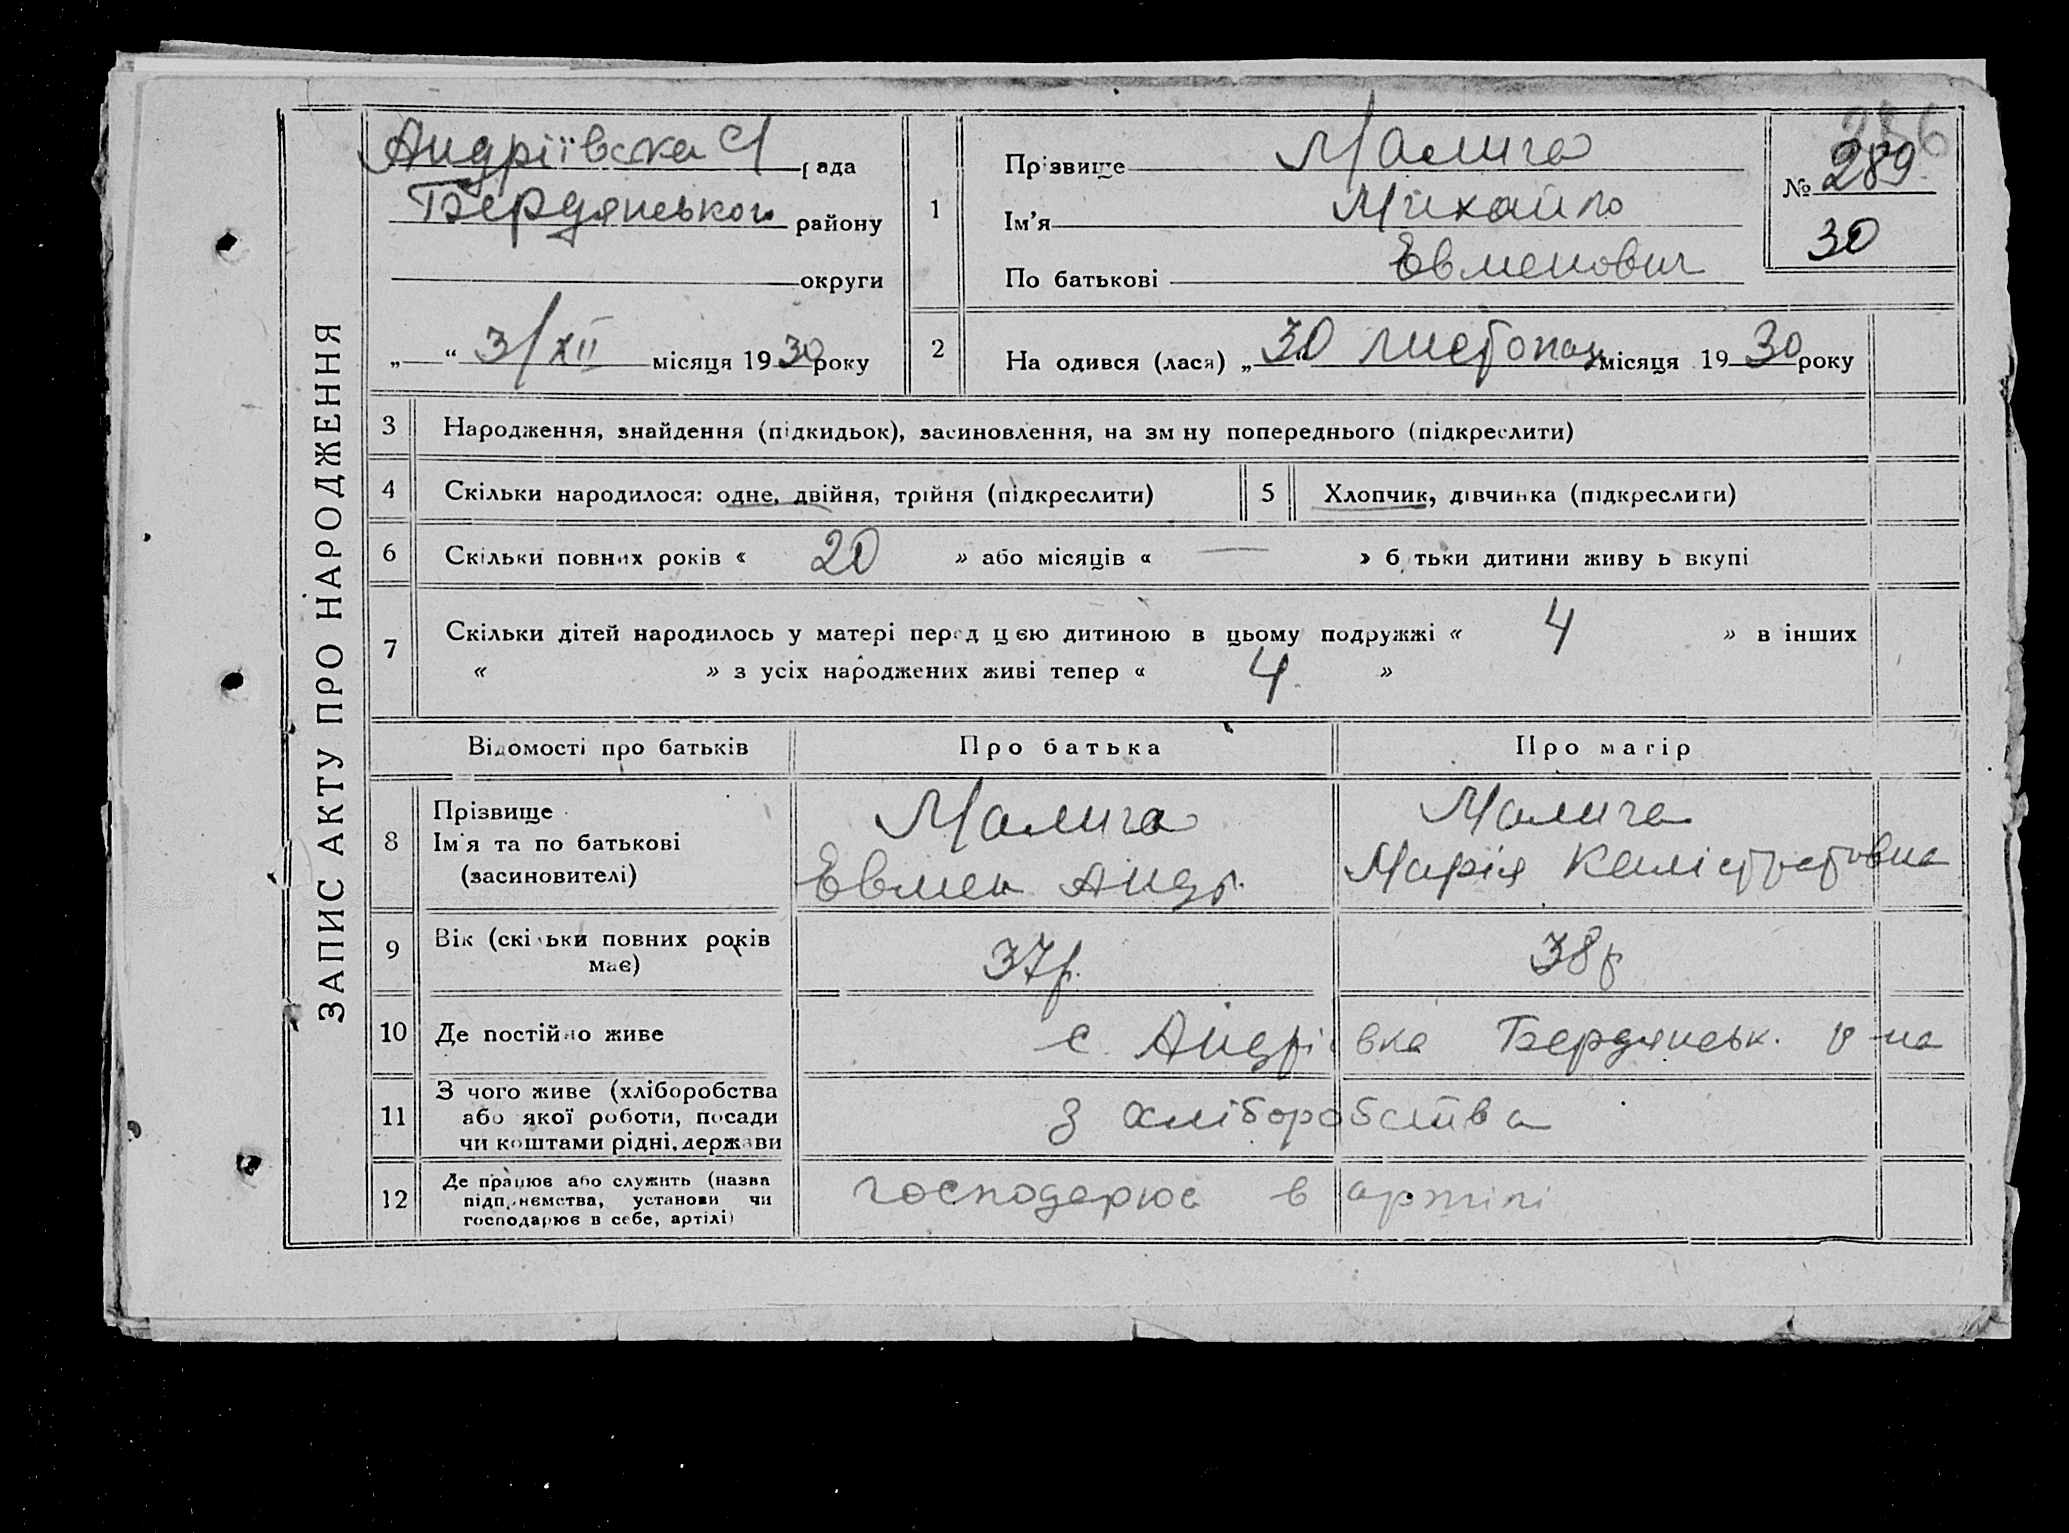 ЗАПИС АКТУ ПРО НАРОДЖЕННЯ
Андріївська С/рада
Бердянського району
округи
„ “ 3/XII місяця 1930 року
1
Прізвище Малига
Ім'я Михайло
По батькові Евменович
№ 289
30
2
На одився (лася) „30 листопад місяця 1930 року
3 Народження, знайдення (підкидьок), засиновлення, на зм ну попереднього (підкреслити)
4 Скільки народилося: одне, двійня, трійня (підкреслити)
5 Хлопчик, дівчинка (підкреслити)
6 Скільки повних років « 20 » або місяців « — » б тьки дитини живу ь вкупі
7 Скільки дітей народилось у матері перед цією дитиною в цьому подружжі « 4 » в інших
« » з усіх народжених живі тепер « 4 »
Відомості про батьків
Про батька
Про матір
8 Прізвище
Ім'я та по батькові
(засиновителі)
Малига
Евмен Андр.
Малига
Марія Калістратовна
9 Вік (скільки повних років
має)
37р.
38р
10 Де постійно живе
с. Андрівка Бердянськ. р-на
11 З чого живе (хліборобства
або якої роботи, посади
чи коштами рідні, держави
З хліборобства
12 Де працює або служить (назва
підприємства, установи чи
господарює в себе, артілі)
господарює в артілі